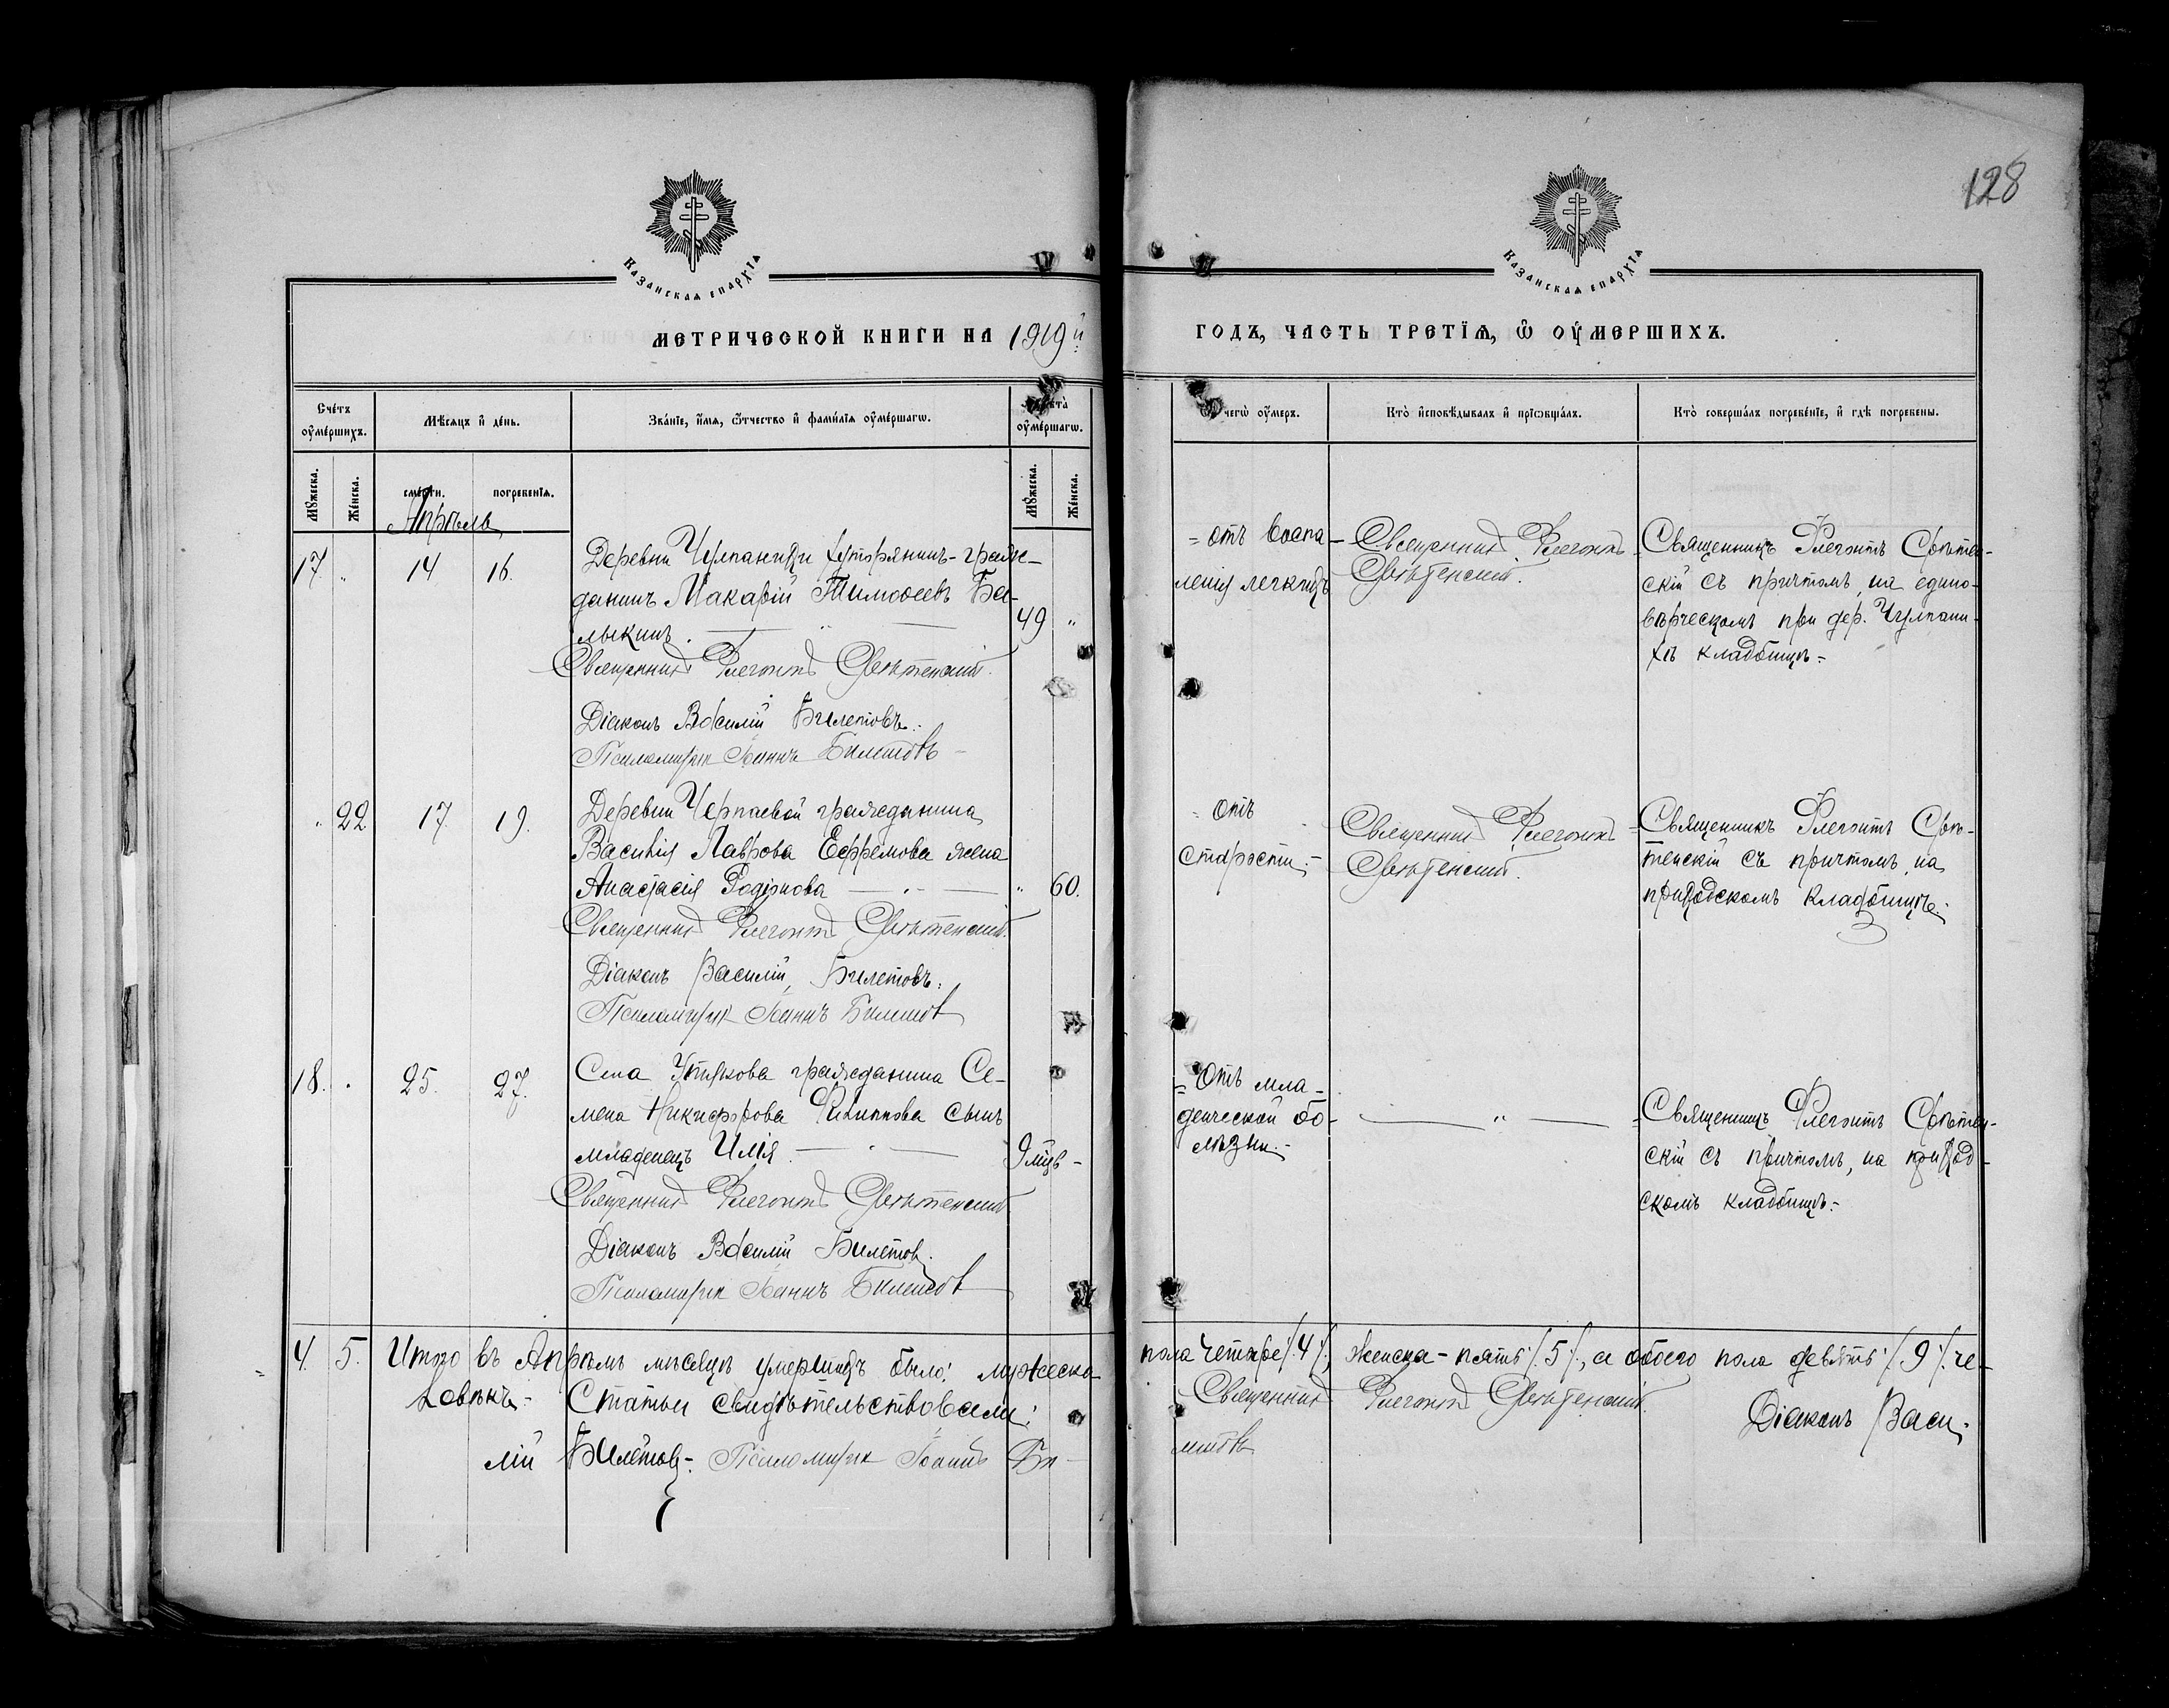 128
Казанская епархїѧ
Казанская епархїѧ
МЕТРИЧЕСКОЙ КНИГИ НА 1919й
ГОДЪ, ЧАСТЬ ТРЕТЇѦ, Ѿ ОУМЕРШИХЪ.
Счетъ оумершихъ.
Мѣсяцъ и день.
Званїе, имя, ѿчество и фамилїя оумершагѡ.
оумершагѡ.
чегѡ оумеръ.
Кто исповѣдывалъ и прїѡбщалъ.
Кто совершалъ погребенїе, и гдѣ погребены.
Мужеска.
Женска.
смерти.
погребенїя.
Мужеска.
Женска.
Апрѣль
17. " 14 16.
Деревни Чулпанихи хуторянинъ-граж-
данинъ Макарій Тимофеевъ Ба-
лыкинъ. — " — 49 "
Священникъ Флегонтъ Срѣтенскій.
Діаконъ Василій Билетовъ.
Псаломщик Іоаннъ Билетовъ
= отъ воспа-
ленія легкихъ
Священникъ Флегонтъ
Срѣтенскій.
Священникъ Флегонтъ Срѣтен-
скій съ причтомъ, на едино-
вѣрческомъ при дер. Чулпани-
хѣ кладбищѣ.-
" 22 17. 19.
Деревни Черпаевой гражданина
Василія Лаврова Ефремова жена
Анастасія Родіонова — " — " 60.
Священникъ Флегонтъ Срѣтенскій.
Діаконъ Василій Билетовъ.
Псаломщик Іоаннъ Билетов
Отъ
старости.-
Священникъ Флегонтъ
Срѣтенскій.
=Священникъ Флегонтъ Срѣ-
тенскій съ причтомъ, на
приходскомъ кладбищѣ.-
18. " 25. 27.
Села Утякова гражданина Се-
мена Никифорова Филиппова сынъ
младенецъ Илія. — " — 9 мцв -
Священникъ Флегонтъ Срѣтенскій
Діаконъ Василій Билетов.
Псаломщик Іоаннъ Билетов
= Отъ мла-
денческой бо-
лѣзни.-
— " —
=Священникъ Флегонтъ Срѣтен-
скій съ причтомъ, на приход-
скомъ кладбищѣ.-
4. 5. Итого въ Апрѣлѣ мѣсяцѣ умершихъ было: мужеска
пола четыре /.4./, женска - пять /.5./, а обоего пола девять /.9./. че-
ловѣкъ.- Статьи свидѣтельствовали:
Священникъ Флегонтъ Срѣтенскій.
Діаконъ Васи-
лій Билетов.- Псаломщик Іоаннъ Би-
летовъ